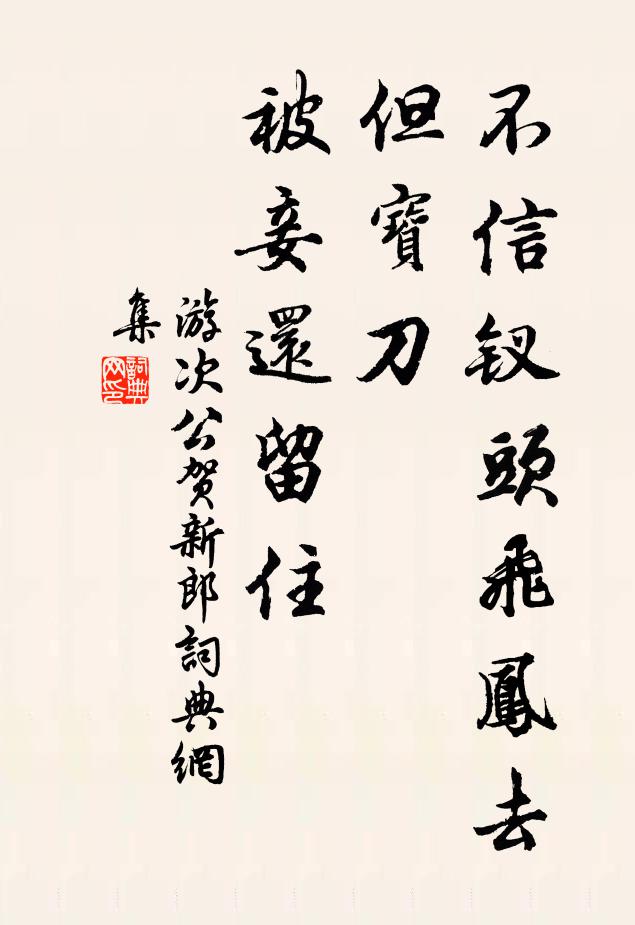 不信钗頭飛鳳去
但寶刀
被妾還留住
游次公贺新郎詞典網
集
詞典
网印